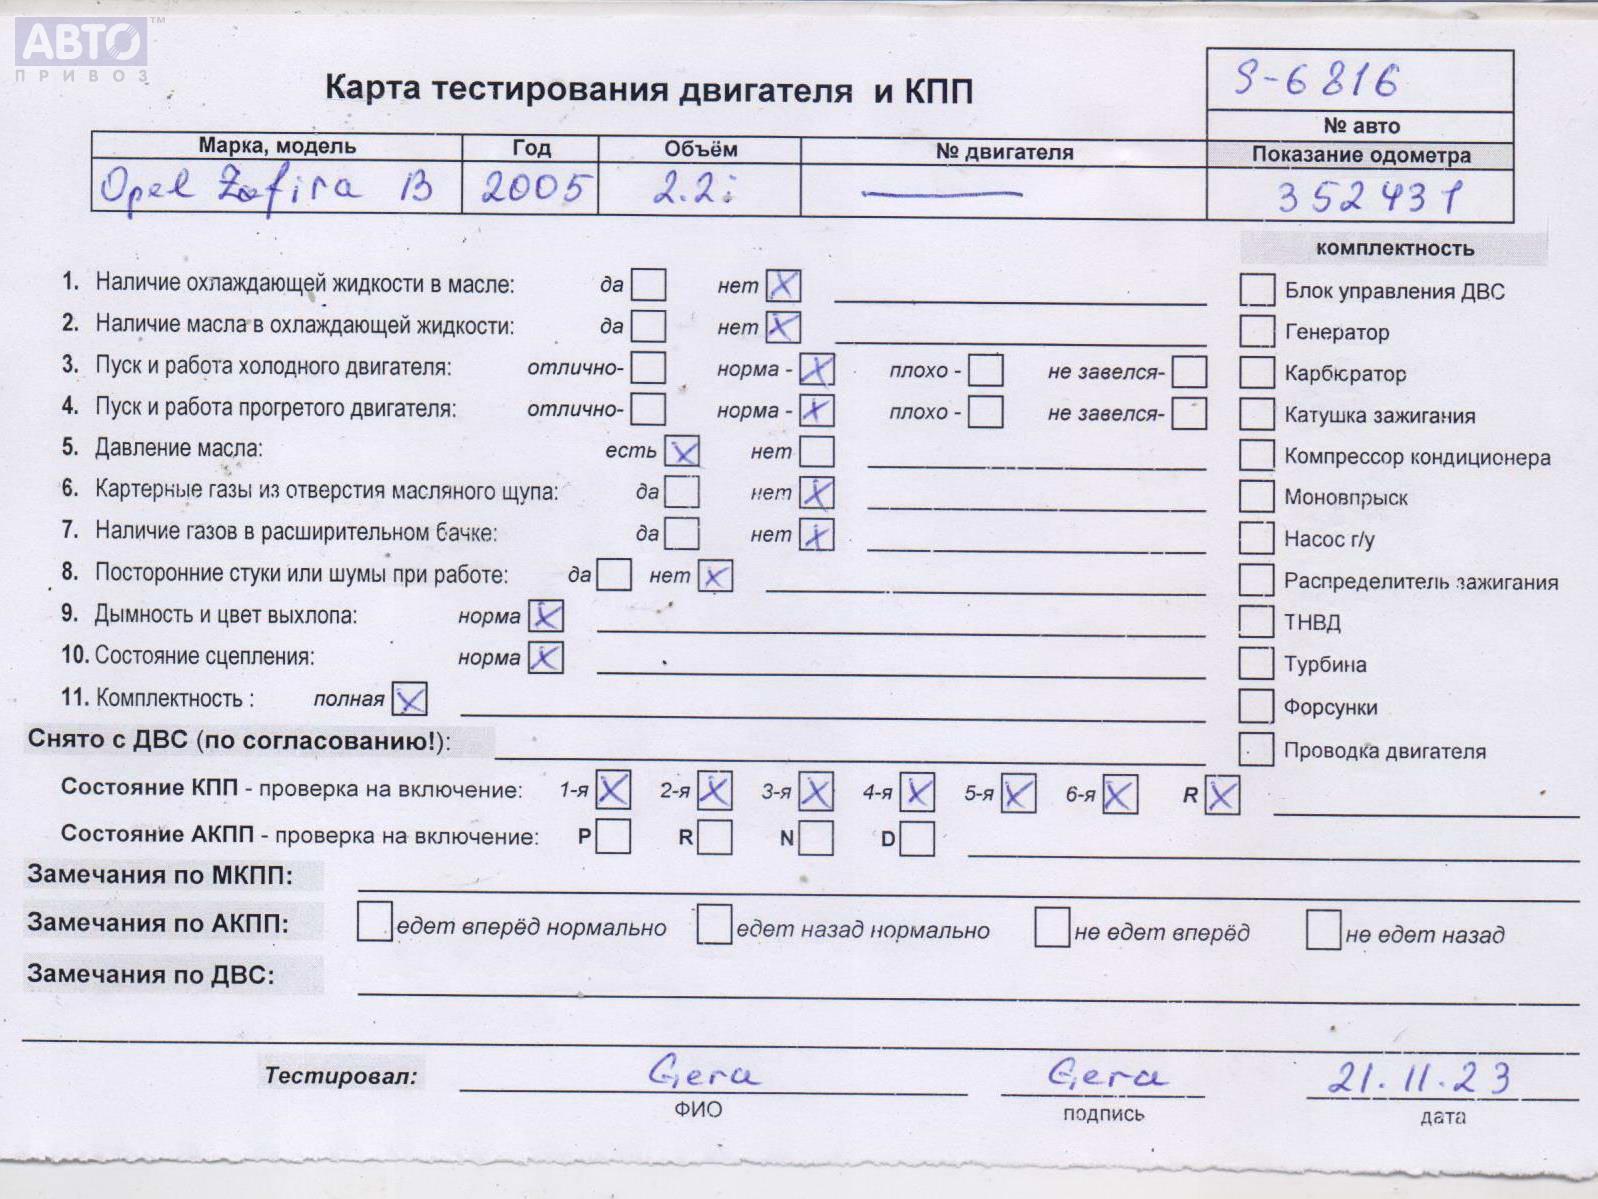 АВТО™
ПРИВОЗ
Карта тестирования двигателя и КПП
S-6816
№ авто
Марка, модель Год Объём № двигателя Показание одометра
Opel Zafira B 2005 2.2i 352431
комплектность
1. Наличие охлаждающей жидкости в масле: да нет X Блок управления ДВС
2. Наличие масла в охлаждающей жидкости: да нет X Генератор
3. Пуск и работа холодного двигателя: отлично- норма - X плохо - не завелся- Карбюратор
4. Пуск и работа прогретого двигателя: отлично- норма - X плохо - не завелся- Катушка зажигания
5. Давление масла: есть X нет Компрессор кондиционера
6. Картерные газы из отверстия масляного щупа: да нет X Моновпрыск
7. Наличие газов в расширительном бачке: да нет X Насос г/у
8. Посторонние стуки или шумы при работе: да нет X Распределитель зажигания
9. Дымность и цвет выхлопа: норма X ТНВД
10. Состояние сцепления: норма X Турбина
11. Комплектность : полная X Форсунки
Снято с ДВС (по согласованию!): Проводка двигателя
Состояние КПП - проверка на включение: 1-я X 2-я X 3-я X 4-я X 5-я X 6-я X R X
Состояние АКПП - проверка на включение: P R N D
Замечания по МКПП:
Замечания по АКПП: едет вперёд нормально едет назад нормально не едет вперёд не едет назад
Замечания по ДВС:
Тестировал: Gera Gera 21.11.23
ФИО подпись дата